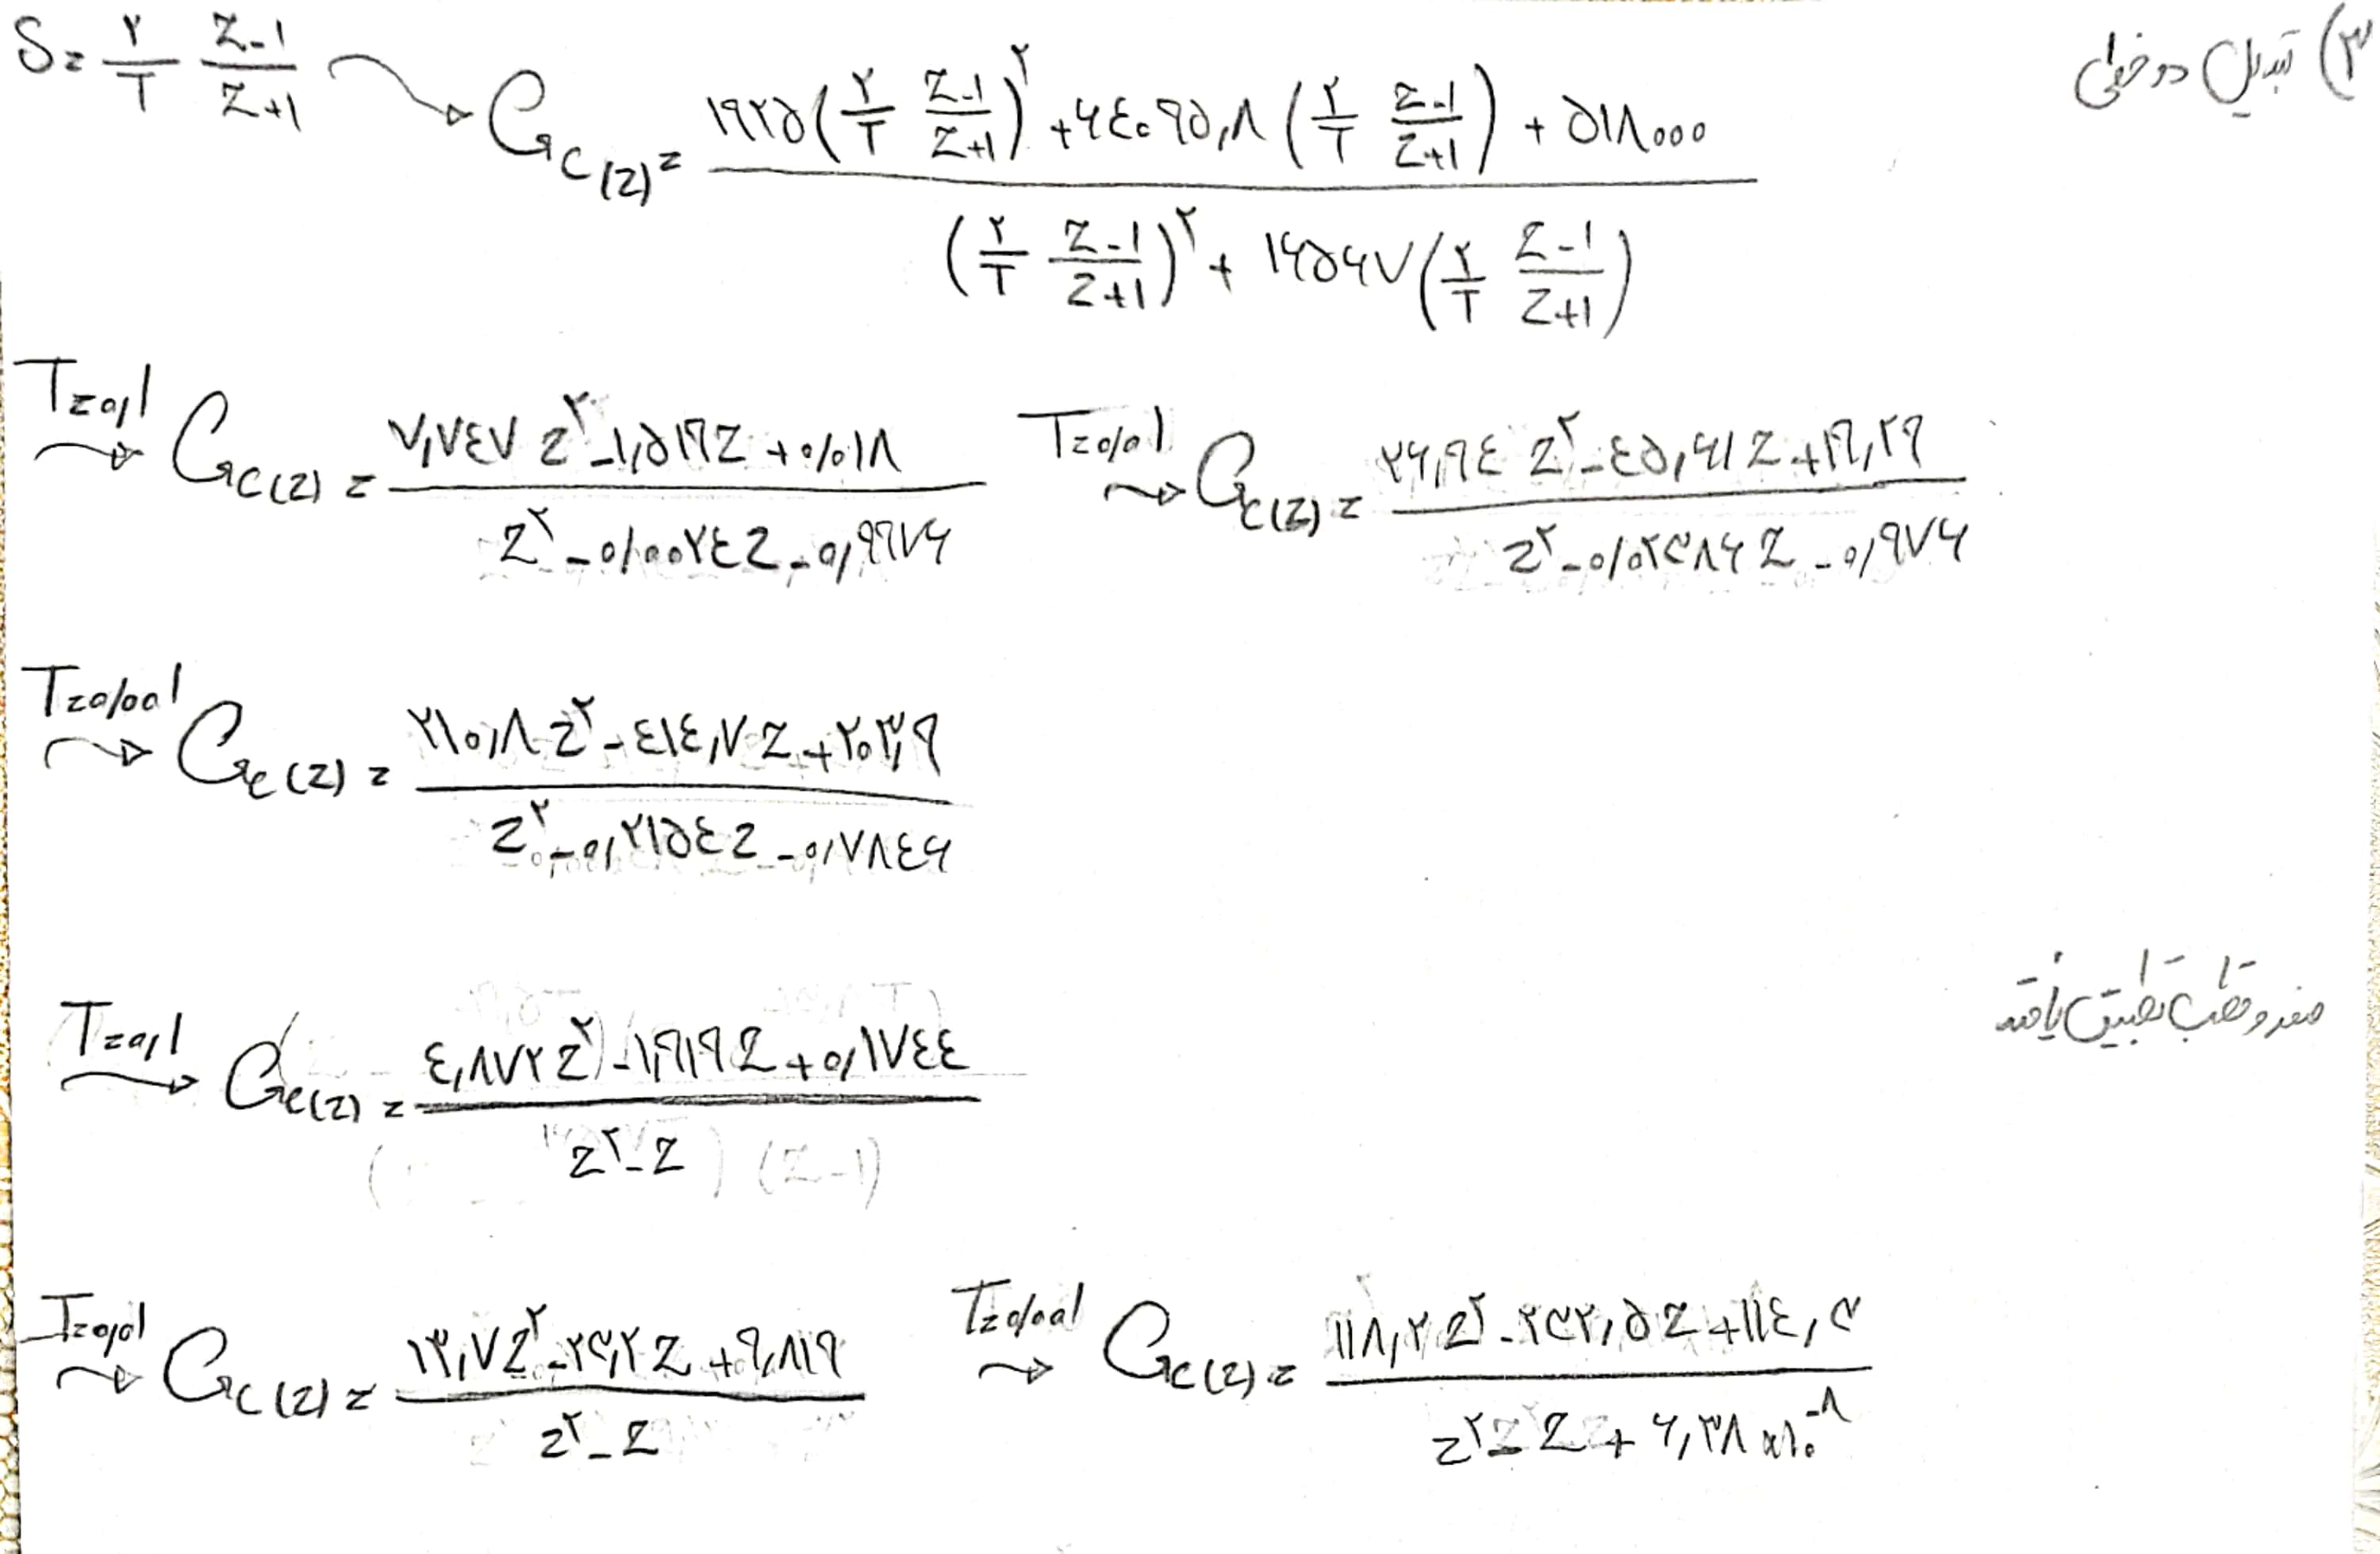 ۳) تبدیل دوخطی
S = ۲/T (Z-۱)/(Z+۱) → G_C(z) = (۱۹۲۵(۲/T (Z-۱)/(Z+۱))^۲ + ۶٤۰۹۵,۸(۲/T (Z-۱)/(Z+۱)) + ۵۱۸۰۰۰) / ((۲/T (Z-۱)/(Z+۱))^۲ + ۱۶۵۶۷(۲/T (Z-۱)/(Z+۱)))
T=۰,۱ → G_C(z) = (۷,۷٤۷ z^۲ - ۱,۵۱۹Z + ۰,۰۱۸) / (z^۲ - ۰,۰۰۲٤Z - ۰,۹۹۷۶) T=۰,۰۱ → G_C(z) = (۲۶,۹٤ z^۲ - ٤۵,۶۱Z + ۱۹,۲۹) / (z^۲ - ۰,۰۲۳۸۶Z - ۰,۹۷۶)
T=۰,۰۰۱ → G_C(z) = (۲۱۰,۸ z^۲ - ٤۱٤,۷Z + ۲۰۳,۹) / (z^۲ - ۰,۲۱۵٤Z - ۰,۷۸٤۶)
صفر و قطب تطبیق یافته
T=۰,۱ → G_C(z) = (٤,۸۷۲ z^۲ - ۱,۹۱۹Z + ۰,۱۷٤٤) / (z^۲ - Z)
T=۰,۰۱ → G_C(z) = (۱۳,۷ z^۲ - ۲۳,۲Z + ۹,۸۱۹) / (z^۲ - Z) T=۰,۰۰۱ → G_C(z) = (۱۱۸,۲ z^۲ - ۲۳۲,۵Z + ۱۱٤,۳) / (z^۲ - Z + ۶,۳۸×۱۰^-۸)